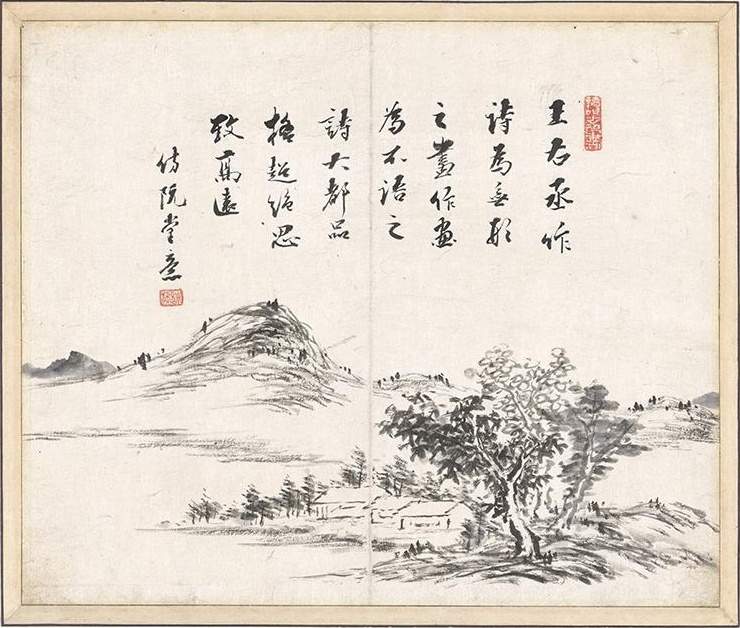 王右丞作
詩為無形
之畫作畫
為不語之
詩大都品
格超絕思
致高遠
仿阮堂意